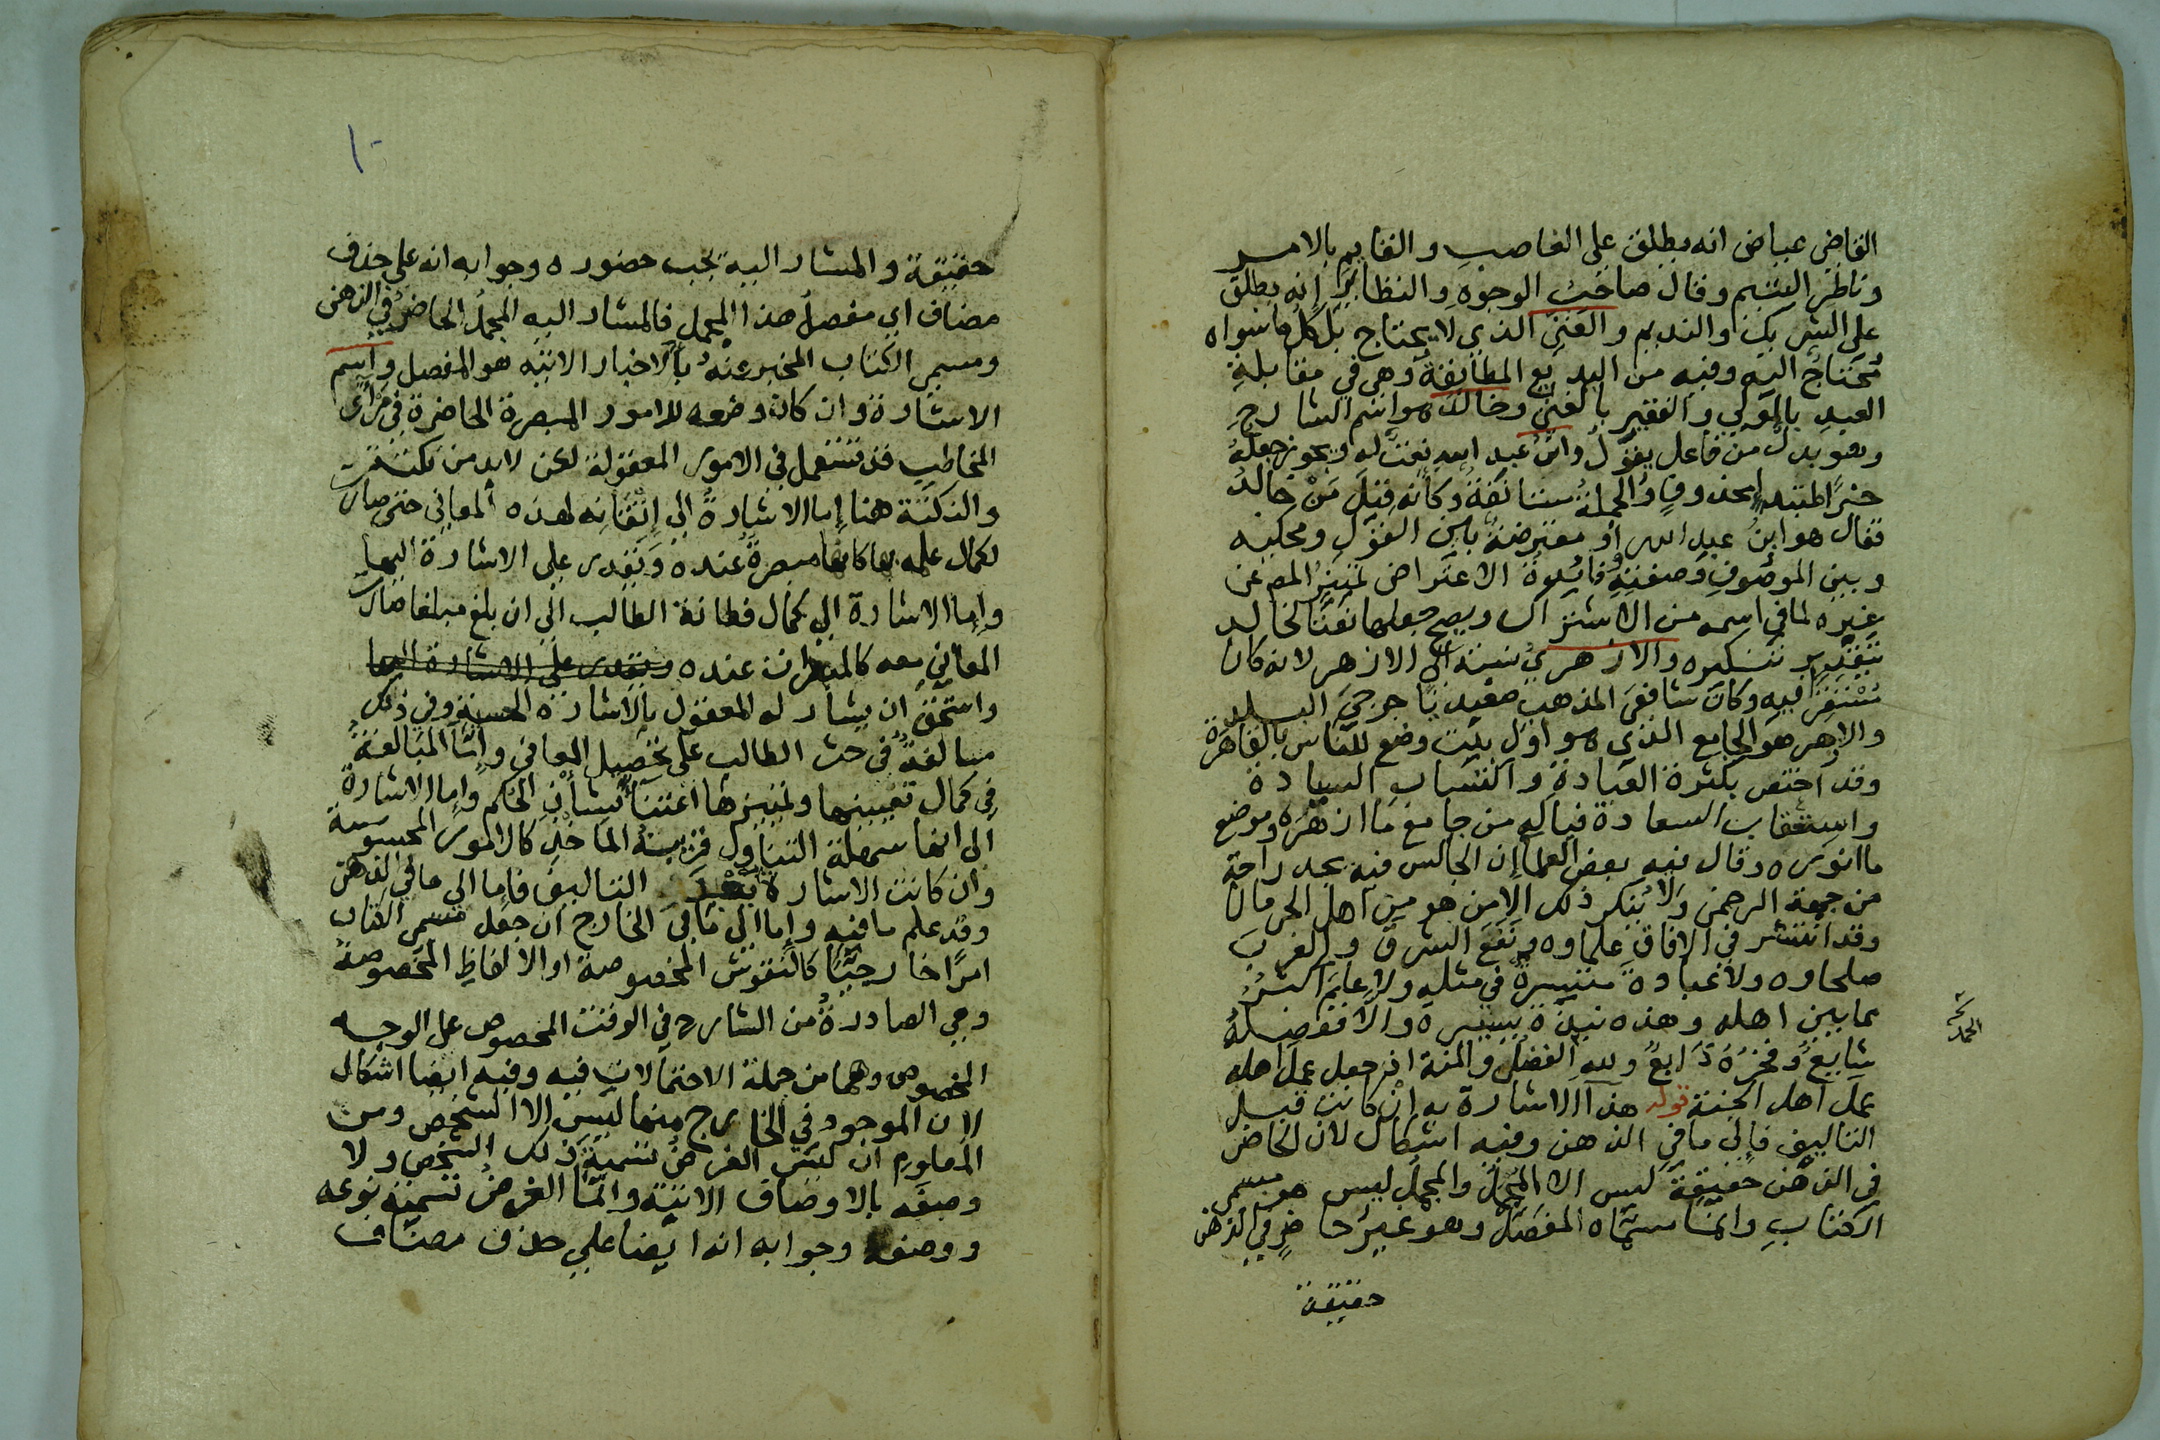 القاضى عياض انه يطلق على الغاصب والقايم بالامر
وناظر اليتيم وقال صاحب الوجوه والنظاير إنه يطلق
على الشريك والنديم والغنى الذي لا يحتاج بل كل ما سواه
محتاج اليه وفيه من البديع المطابقة وهى في مقابلة
العبد بالمولي والفقير بالغنى وخالد هو اسم الشارح
وهو بدل من فاعل يقول وابن عبد الله نعت له ويجوز جعله
خبرًا لمبتدإ محذوف والجملة مستانفة وكانه قيل من خالد
فقال هو ابن عبد الله او معترضة بين القول ومحكيه
وبين الموصوف وصفته وفايدة الاعتراض تمييز المص عن
غيره لما في اسمه من الاشتراك ويصح جعلها نعتًا لخالد
بتقدير تنكيره والازهري نسبة الي الازهر لانه كان
مستقرا فيه وكان شافعى المذهب صعيديًا جرجي البلد
والازهر هو الجامع الذي هو اول بيت وضع للناس بالقاهرة
وقد اختص بكثرة العبادة واكتساب السيادة
واستعقاب السعادة فياله من جامع ما ازهره وموضع
ما انوره وقال فيه بعض العلما إن الجالس فيه يجد راحة
من جهة الرحمن ولا ينكر ذلك الا من هو من اهل الحرمان
وقد انتشر في الافاق علماوه ونفع الشرق والغرب
صلحاوه ولا عبادة متيسرة في مثله ولا عالم اكثر
مما بين اهله وهذه نبذة يسيرة والا ففضله
شايع وفخره ذايع ولله الفضل والمنة ان جعل عمل اهله
عمل اهل الجنة قوله هذا الاشارة به إن كانت قبل
التاليف فإلى ما في الذهن وفيه اشكال لان الحاضر
في الذهن حقيقة ليس الا المجمل والمجمل ليس هو مسمى
الكتاب وانما مسماه المفصل وهو غير حاضر في الذهن
حقيقة
حقيقة والمشار اليه يجب حضوره وجوابه انه علي حذف
مضاف اي مفصل هذا المجمل فالمشار اليه المجمل الحاضر في الذهن
ومسمى الكتاب المخبر عنه بالاخبار الاتيه هو المفصل واسم
الاشارة وان كان وضعه للامور المبصرة الحاضرة في مرأى
المخاطب قد تستعمل في الامور المعقولة لكن لابد من نكتة
والنكتة هنا إما الاشارة الى إتقانه لهذه المعاني حتى صارت
لكمال علمه بها كانها مبصرة عنده ويقدر على الاشارة اليها
وإما الاشارة الى كمال فطانة الطالب الى ان بلغ مبلغا صارت
المعاني معه كالمبصرات عنده ويقدر على الاشارة اليها
واستحق ان يشار له للمعقول بالاشارة الحسية وفي ذلك
مبالغة في حث الطالب على تحصيل المعاني وإما المبالغة
في كمال تعيينها وتمييزها اعتناءً بشأن الحكم وإما الاشارة
الى انها سهلة التناول قريبة الماخذ كالامور المحسوسة
وان كانت الاشارة بعد التاليف فإما الي ما في الذهن
وقد علم ما فيه وإما الي ما في الخارج ان جعل مسمى الكتاب
امرًا خارجيًا كالنقوش المخصوصة او الالفاظ المخصوصة
وهي الصادرة من الشارح في الوقت المخصوص على الوجه
المخصوص وهما من جملة الاحتمالات فيه وفيه ايضا اشكال
لان الموجود في الخارج منهما ليس الا الشخص ومن
المعلوم ان ليس الغرض تسمية ذلك الشخص ولا
وصفه بالاوصاف الاتية وانما الغرض تسمية نوعه
ووصفه وجوابه انه ايضا علي حذف مضاف